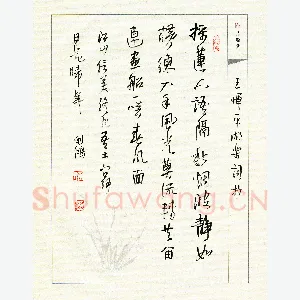 王恽平湖樂
採菱人語隔秋烟波静如
横練入手風光莫流轉共留
連画船一笑春風面
江山信美終非吾土問何
日是歸年
Shufawang.CN